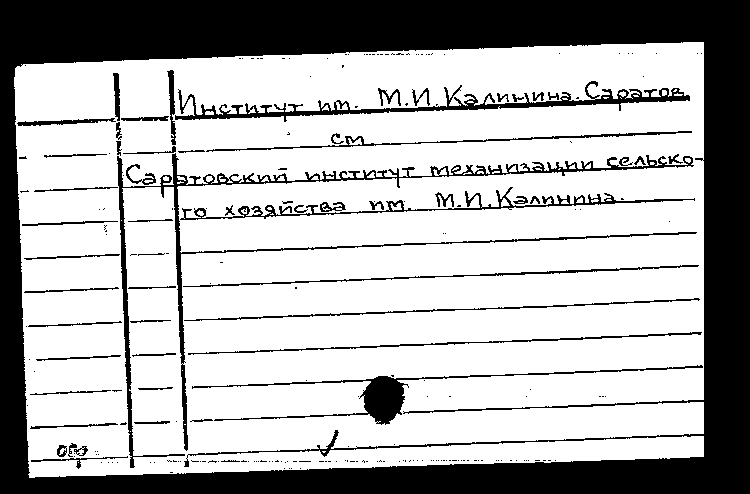 Институт им. М.И. Калинина. Саратов
см.
Саратовский институт механизации сельско-
го хозяйства им. М.И. Калинина.